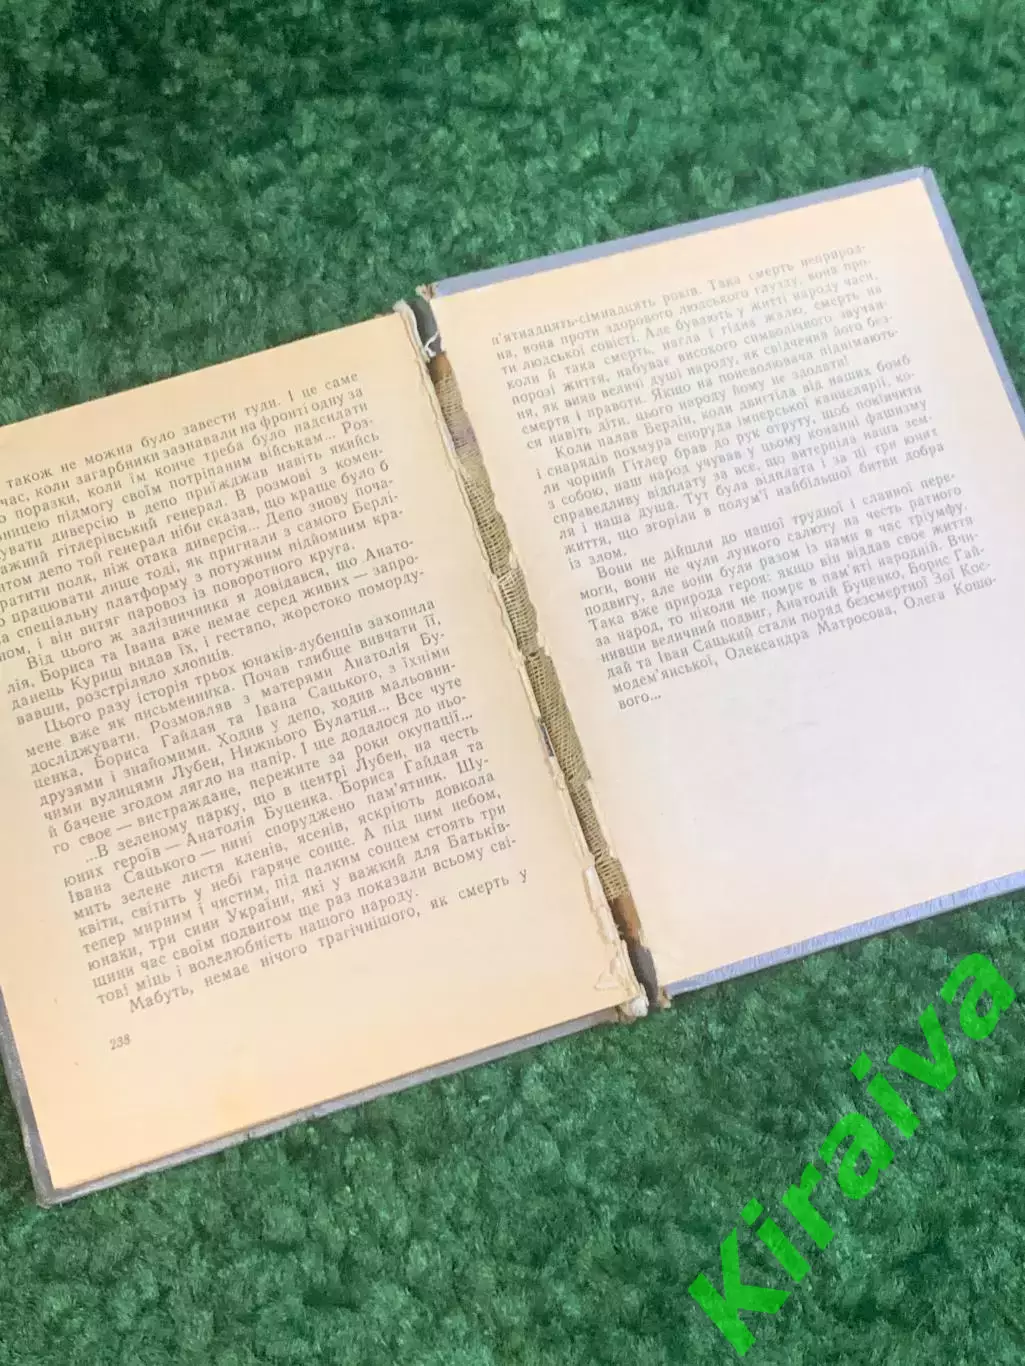 також не можна було завести туди. І це саме
час, коли загарбники зазнавали на фронті одну за
поразки, коли їм конче треба було надсилати
ницею підмогу своїм потріпаним військам... Роз-
увати диверсію в депо приїжджав навіть якийсь
ажний гітлерівський генерал. В розмові з комен-
нтом депо той генерал ніби сказав, що краще було б
ратити полк, ніж отака диверсія... Депо знову поча-
о працювати лише тоді, як пригнали з самого Берлі-
на спеціальну платформу з потужним підйомним кра-
ном, і він витяг паровоз із поворотного круга.
Від цього ж залізничника я довідався, що Анато-
лія, Бориса та Івана вже немає серед живих — запро-
данець Куриш видав їх, і гестапо, жорстоко поморду-
вавши, розстріляло хлопців.
Цього разу історія трьох юнаків-лубенців захопила
мене вже як письменника. Почав глибше вивчати її,
досліджувати. Розмовляв з матерями Анатолія Бу-
ценка, Бориса Гайдая та Івана Сацького, з їхніми
друзями і знайомими. Ходив у депо, ходив мальовни-
чими вулицями Лубен, Нижнього Булатця... Все чуте
й бачене згодом лягло на папір. І ще додалося до ньо-
го своє — вистраждане, пережите за роки окупації...
...В зеленому парку, що в центрі Лубен, на честь
юних героїв — Анатолія Буценка, Бориса Гайдая та
Івана Сацького — нині споруджено пам'ятник. Шу-
мить зелене листя кленів, ясенів, яскріють довкола
квіти, світить у небі гаряче сонце. А під цим небом,
тепер мирним і чистим, під палким сонцем стоять три
юнаки, три сини України, які у важкий для Батьків-
щини час своїм подвигом ще раз показали всьому сві-
тові міць і волелюбність нашого народу.
Мабуть, немає нічого трагічнішого, як смерть у
238
п'ятнадцять-сімнадцять років. Така смерть неприрод-
на, вона проти здорового людського глузду, вона про-
ти людської совісті. Але бувають у житті народу часи,
коли й така смерть, нагла і гідна жалю, смерть на
порозі життя, набуває високого символічного звучан-
ня, як вияв величі душі народу, як свідчення його без-
смертя і правоти. Якщо на поневолювача піднімають-
ся навіть діти, цього народу йому не здолати!
Коли палав Берлін, коли двигтіла від наших бомб
і снарядів похмура споруда імперської канцелярії, ко-
ли чорний Гітлер брав до рук отруту, щоб покінчити
з собою, наш народ учував у цьому конанні фашизму
справедливу відплату за все, що витерпіла наша зем-
ля і наша душа. Тут була відплата і за ці три юних
життя, що згоріли в полум'ї найбільшої битви добра
із злом.
Вони не дійшли до нашої трудної і славної пере-
моги, вони не чули лункого салюту на честь ратного
подвигу, але вони були разом із нами в час тріумфу.
Така вже природа героя: якщо він віддав своє життя
за народ, то ніколи не помре в пам'яті народній. Вчи-
нивши величний подвиг, Анатолій Буценко, Борис Гай-
дай та Іван Сацький стали поряд безсмертної Зої Кос-
модем'янської, Олександра Матросова, Олега Кошо-
вого...
Kiraiva